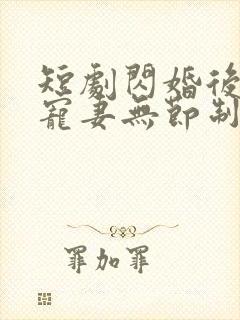 短劇閃婚後
寵妻無節制
罪加罪